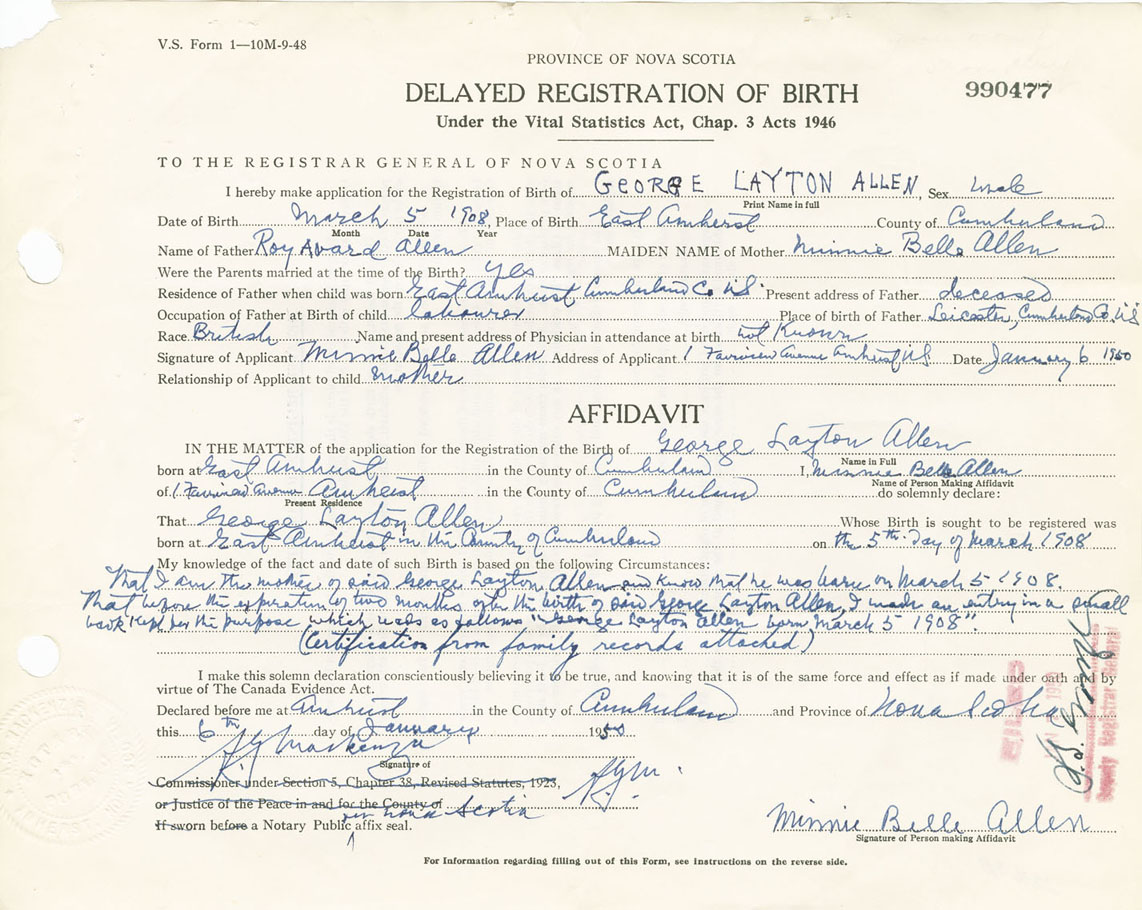 V.S. Form 1—10M-9-48
PROVINCE OF NOVA SCOTIA
DELAYED REGISTRATION OF BIRTH
990477
Under the Vital Statistics Act, Chap. 3 Acts 1946
TO THE REGISTRAR GENERAL OF NOVA SCOTIA
I hereby make application for the Registration of Birth of GEORGE LAYTON ALLEN, Sex Male
Print Name in full
Date of Birth March 5 1908, Place of Birth East Amherst County of Cumberland
Month Date Year
Name of Father Roy Avard Allen MAIDEN NAME of Mother Minnie Belle Allen
Were the Parents married at the time of the Birth? Yes
Residence of Father when child was born East Amherst, Cumberland Co. N.S. Present address of Father deceased
Occupation of Father at Birth of child labourer Place of birth of Father Leicester, Cumberland Co. N.S
Race British Name and present address of Physician in attendance at birth not Known
Signature of Applicant Minnie Belle Allen Address of Applicant 1 Fairview Avenue Amherst N.S Date January 6 1950
Relationship of Applicant to child Mother
AFFIDAVIT
IN THE MATTER of the application for the Registration of the Birth of George Layton Allen
Name in Full
born at East Amherst in the County of Cumberland I, Minnie Belle Allen
Name of Person Making Affidavit
of 1 Fairview Avenue Amherst in the County of Cumberland do solemnly declare:
Present Residence
That George Layton Allen Whose Birth is sought to be registered was
born at East Amherst in the County of Cumberland on the 5th day of March 1908
My knowledge of the fact and date of such Birth is based on the following Circumstances:
That I am the mother of said George Layton Allen and know that he was born on March 5 1908.
That before the expiration of two months after the birth of said George Layton Allen, I made an entry in a small
book kept for the purpose which was as follows "George Layton Allen born March 5 1908".
(Certification from family records attached)
I make this solemn declaration conscientiously believing it to be true, and knowing that it is of the same force and effect as if made under oath and by
virtue of The Canada Evidence Act.
Declared before me at Amherst in the County of Cumberland and Province of Nova Scotia
this 6th day of January 1950
Mackenzie
Signature of
Commissioner under Section 5, Chapter 38, Revised Statutes, 1923,
or Justice of the Peace in and for the County of
for Nova Scotia
If sworn before a Notary Public affix seal.
Minnie Belle Allen
Signature of Person making Affidavit
For Information regarding filling out of this Form, see instructions on the reverse side.
FILED
Deputy Registrar General